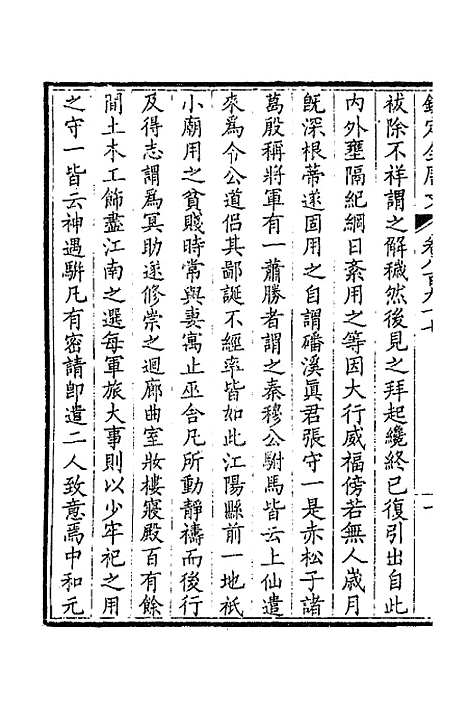 欽定全唐文 卷八百九十七 十一
祓除不祥謂之解穢然後見之拜起纔終已復引出自此
內外壅隔紀綱日紊用之等因大行威福傍若無人歲月
旣深根蒂遂固用之自謂磻溪眞君張守一是赤松子諸
葛殷稱將軍有一蕭勝者謂之秦穆公駙馬皆云上仙遣
來爲令公道侶其鄙誕不經率皆如此江陽縣前一地祇
小廟用之貧賤時常與妻寓止巫舍凡所動靜禱而後行
及得志謂爲冥助遂修崇之迴廊曲室妝樓寢殿百有餘
間土木工飾盡江南之選每軍旅大事則以少牢祀之用
之守一皆云神遇駢凡有密請卽遣二人致意焉中和元